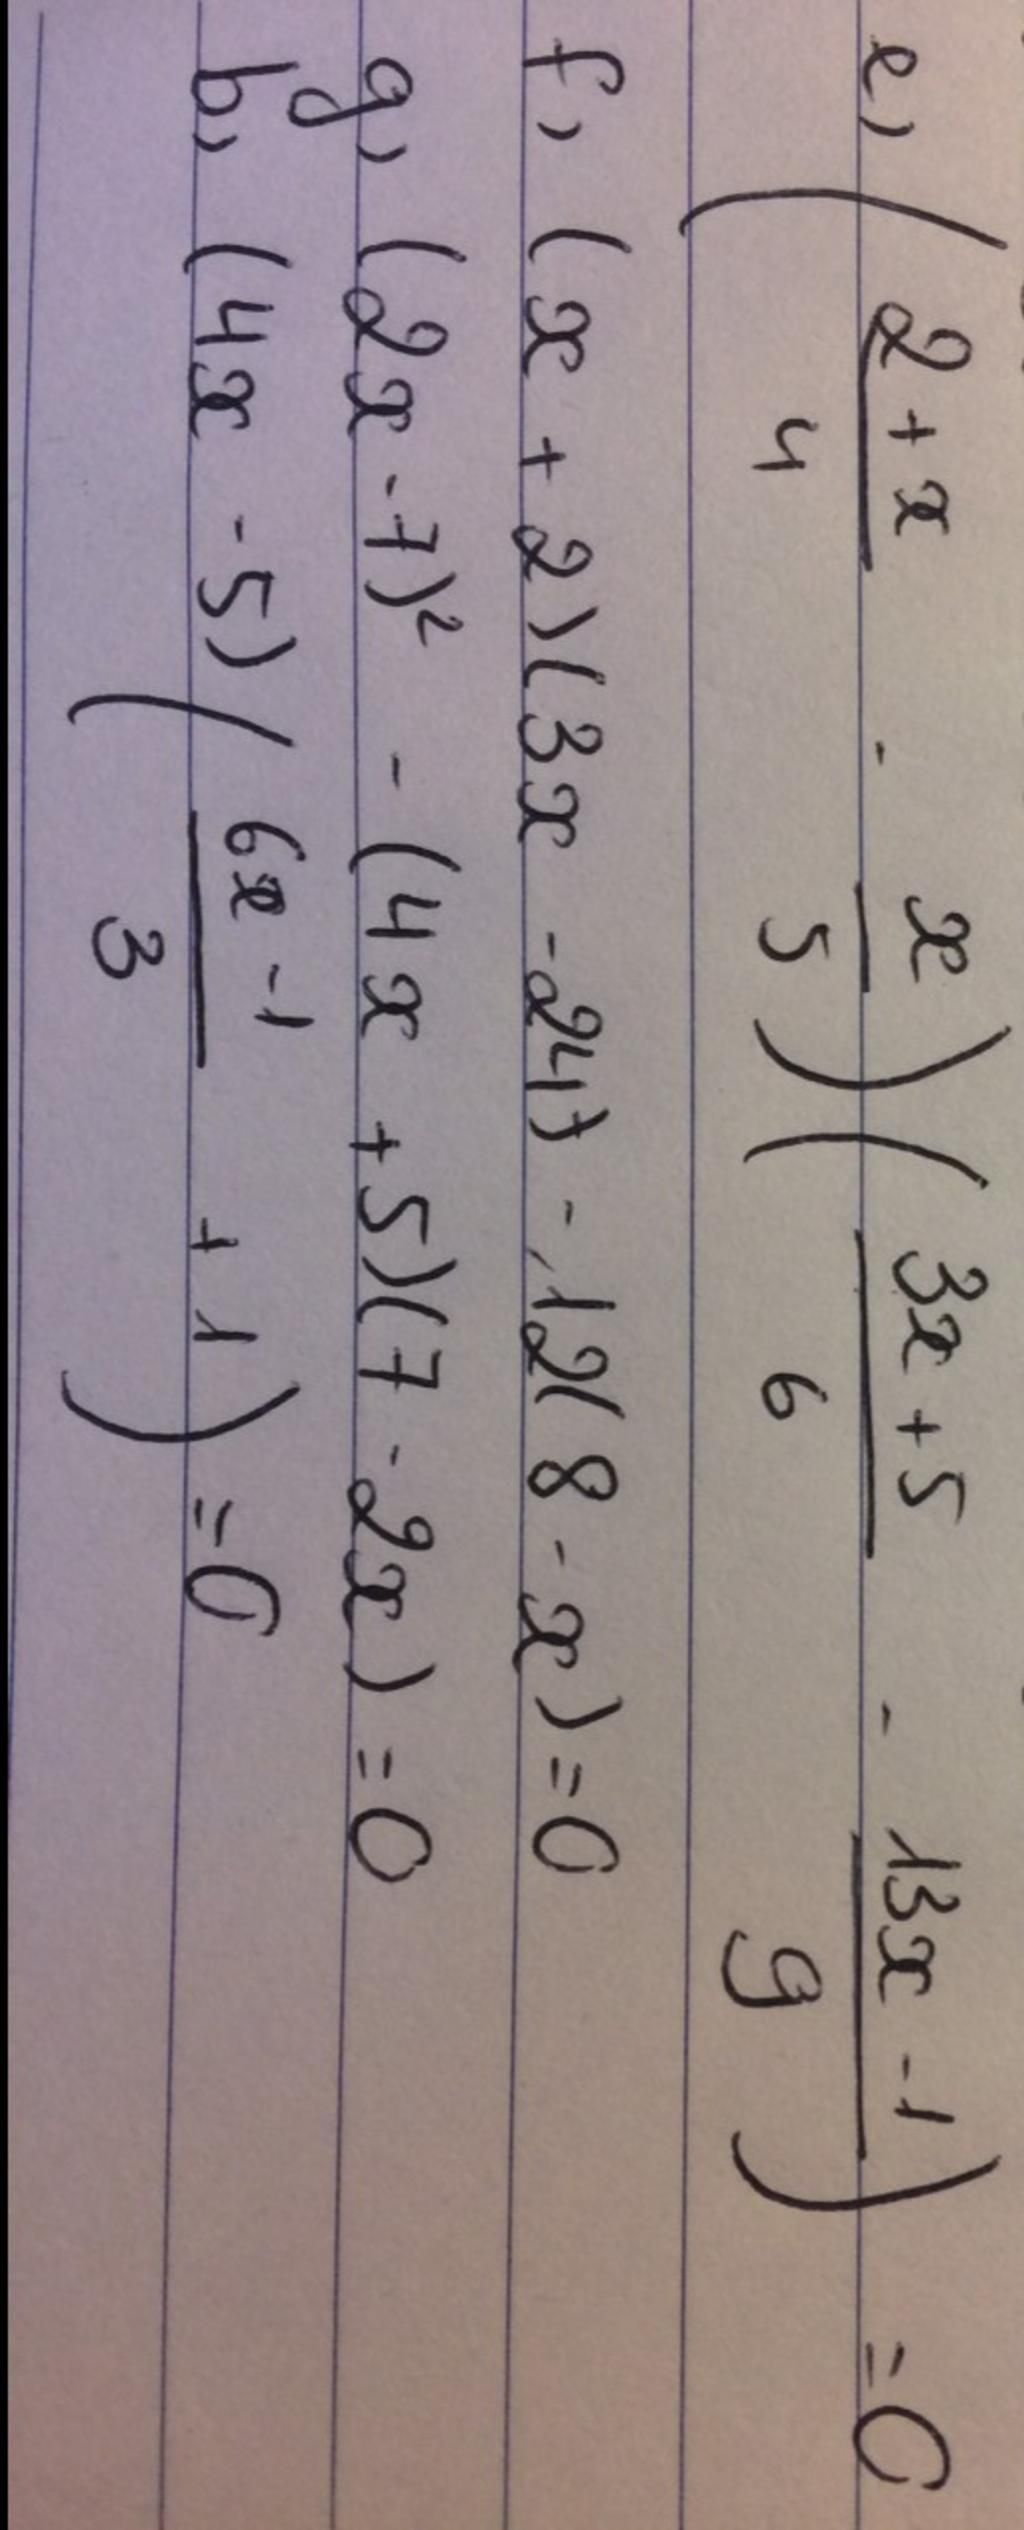 e, ( (2+x)/4 - x/5 ) ( (3x+5)/6 - (13x-1)/9 ) = 0
f, (x+2)(3x-24) - 12(8-x) = 0
g, (2x-7)² - (4x+5)(7-2x) = 0
b, (4x-5) ( (6x-1)/3 + 1 ) = 0